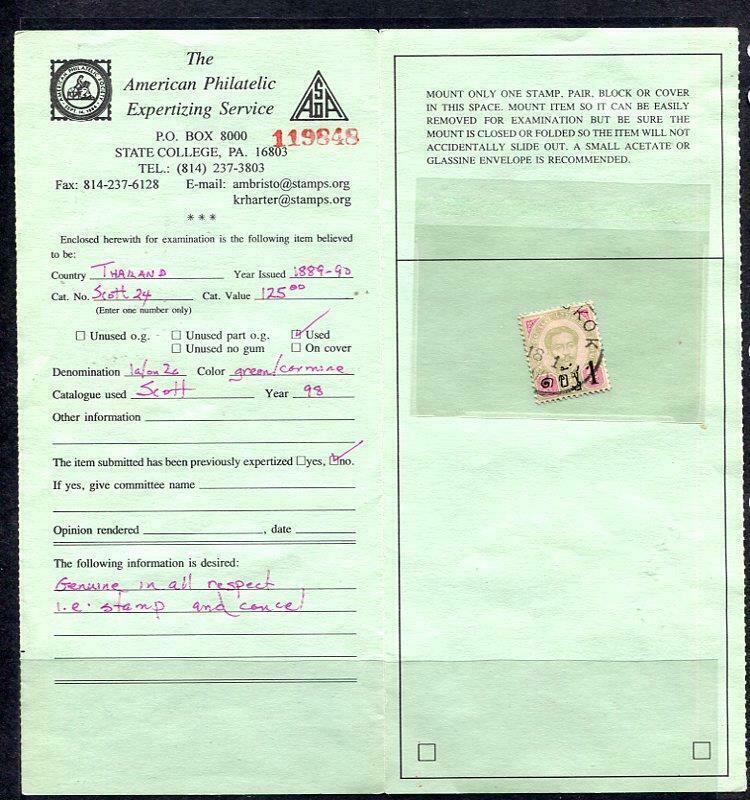 The
American Philatelic
Expertizing Service
P.O. BOX 8000
119848
STATE COLLEGE, PA. 16803
TEL.: (814) 237-3803
Fax: 814-237-6128 E-mail: ambristo@stamps.org
krharter@stamps.org
***
Enclosed herewith for examination is the following item believed
to be:
Country THAILAND Year Issued 1889-90
Cat. No. Scott 24 Cat. Value 125.00
(Enter one number only)
☐ Unused o.g. ☐ Unused part o.g. ☑ Used
☐ Unused no gum ☐ On cover
Denomination 1a/on 2a Color green/carmine
Catalogue used Scott Year 98
Other information
The item submitted has been previously expertized ☐yes, ☑no.
If yes, give committee name
Opinion rendered , date
The following information is desired:
Genuine in all respect
i.e. stamp and cancel
MOUNT ONLY ONE STAMP, PAIR, BLOCK OR COVER
IN THIS SPACE. MOUNT ITEM SO IT CAN BE EASILY
REMOVED FOR EXAMINATION BUT BE SURE THE
MOUNT IS CLOSED OR FOLDED SO THE ITEM WILL NOT
ACCIDENTALLY SLIDE OUT. A SMALL ACETATE OR
GLASSINE ENVELOPE IS RECOMMENDED.
KOK
1